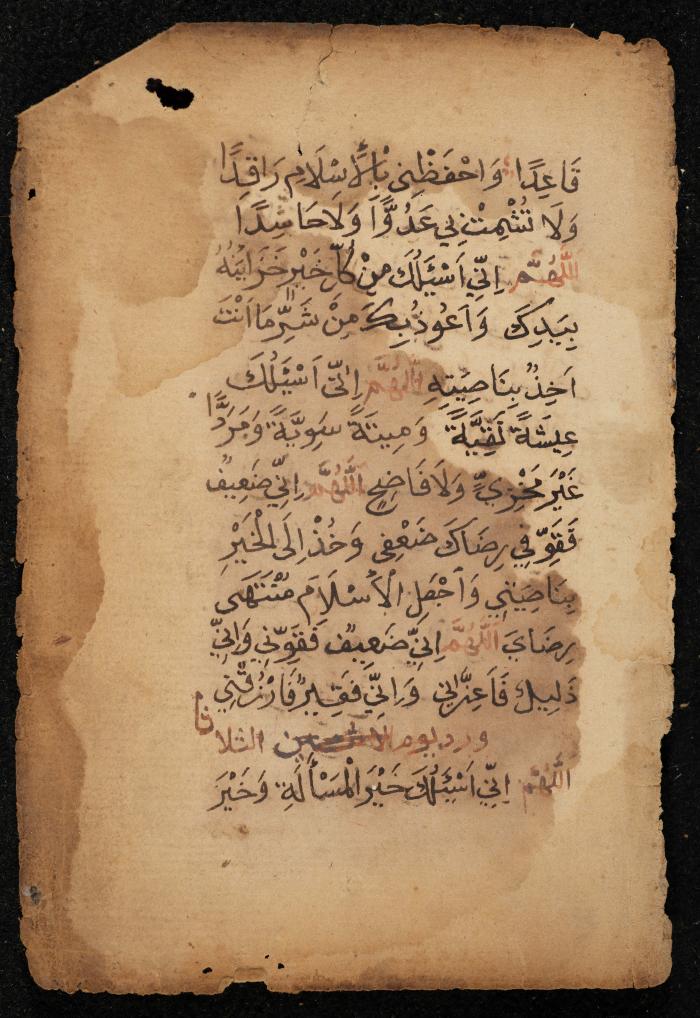 قَاعِدًا وَاحْفَظْنِى بْالْاِسْلَامِ رَاقِدًا
وَلَا تُشْمِتْ بِي عَدُوًّا وَلَا حَاسِدًا
اَللّٰهُمَّ اِنِّي اَسْئَلُكَ مِنْ كُلِّ خَيْرٍ خَزَايِنُهُ
بِيَدِكَ وَاَعُوذُ بِكَ مِنْ شَرِّ مَا اَنْتَ
اٰخِذٌ بِنَاصِيَتِهِ اَللّٰهُمَّ اِنِّي اَسْئَلُكَ
عِيشَةً نَقِيَّةً وَمِيتَةً سَوِيَّةً وَمَرَدًّا
غَيْرَ مَخْزِيٍّ وَلَا فَاضِحٍ اَللّٰهُمَّ اِنِّي ضَعِيفٌ
فَقَوِّ فِي رِضَاكَ ضَعْفِى وَخُذْ اِلَى الْخَيْرِ
بِنَاصِيَتِي وَاجْعَلِ الْاِسْلَامَ مُنْتَهَى
رِضَايَ اَللّٰهُمَّ اِنِّي ضَعِيفٌ فَقَوِّنِي وَاِنِّي
ذَلِيلٌ فَاَعِزَّنِي وَاِنِّي فَقِيرٌ فَارْزُقْنِي
ورد يوم الاثنين الثلاثا
اَللّٰهُمَّ اِنِّي اَسْئَلُكَ خَيْرَ الْمَسْأَلَةِ وَخَيْرَ